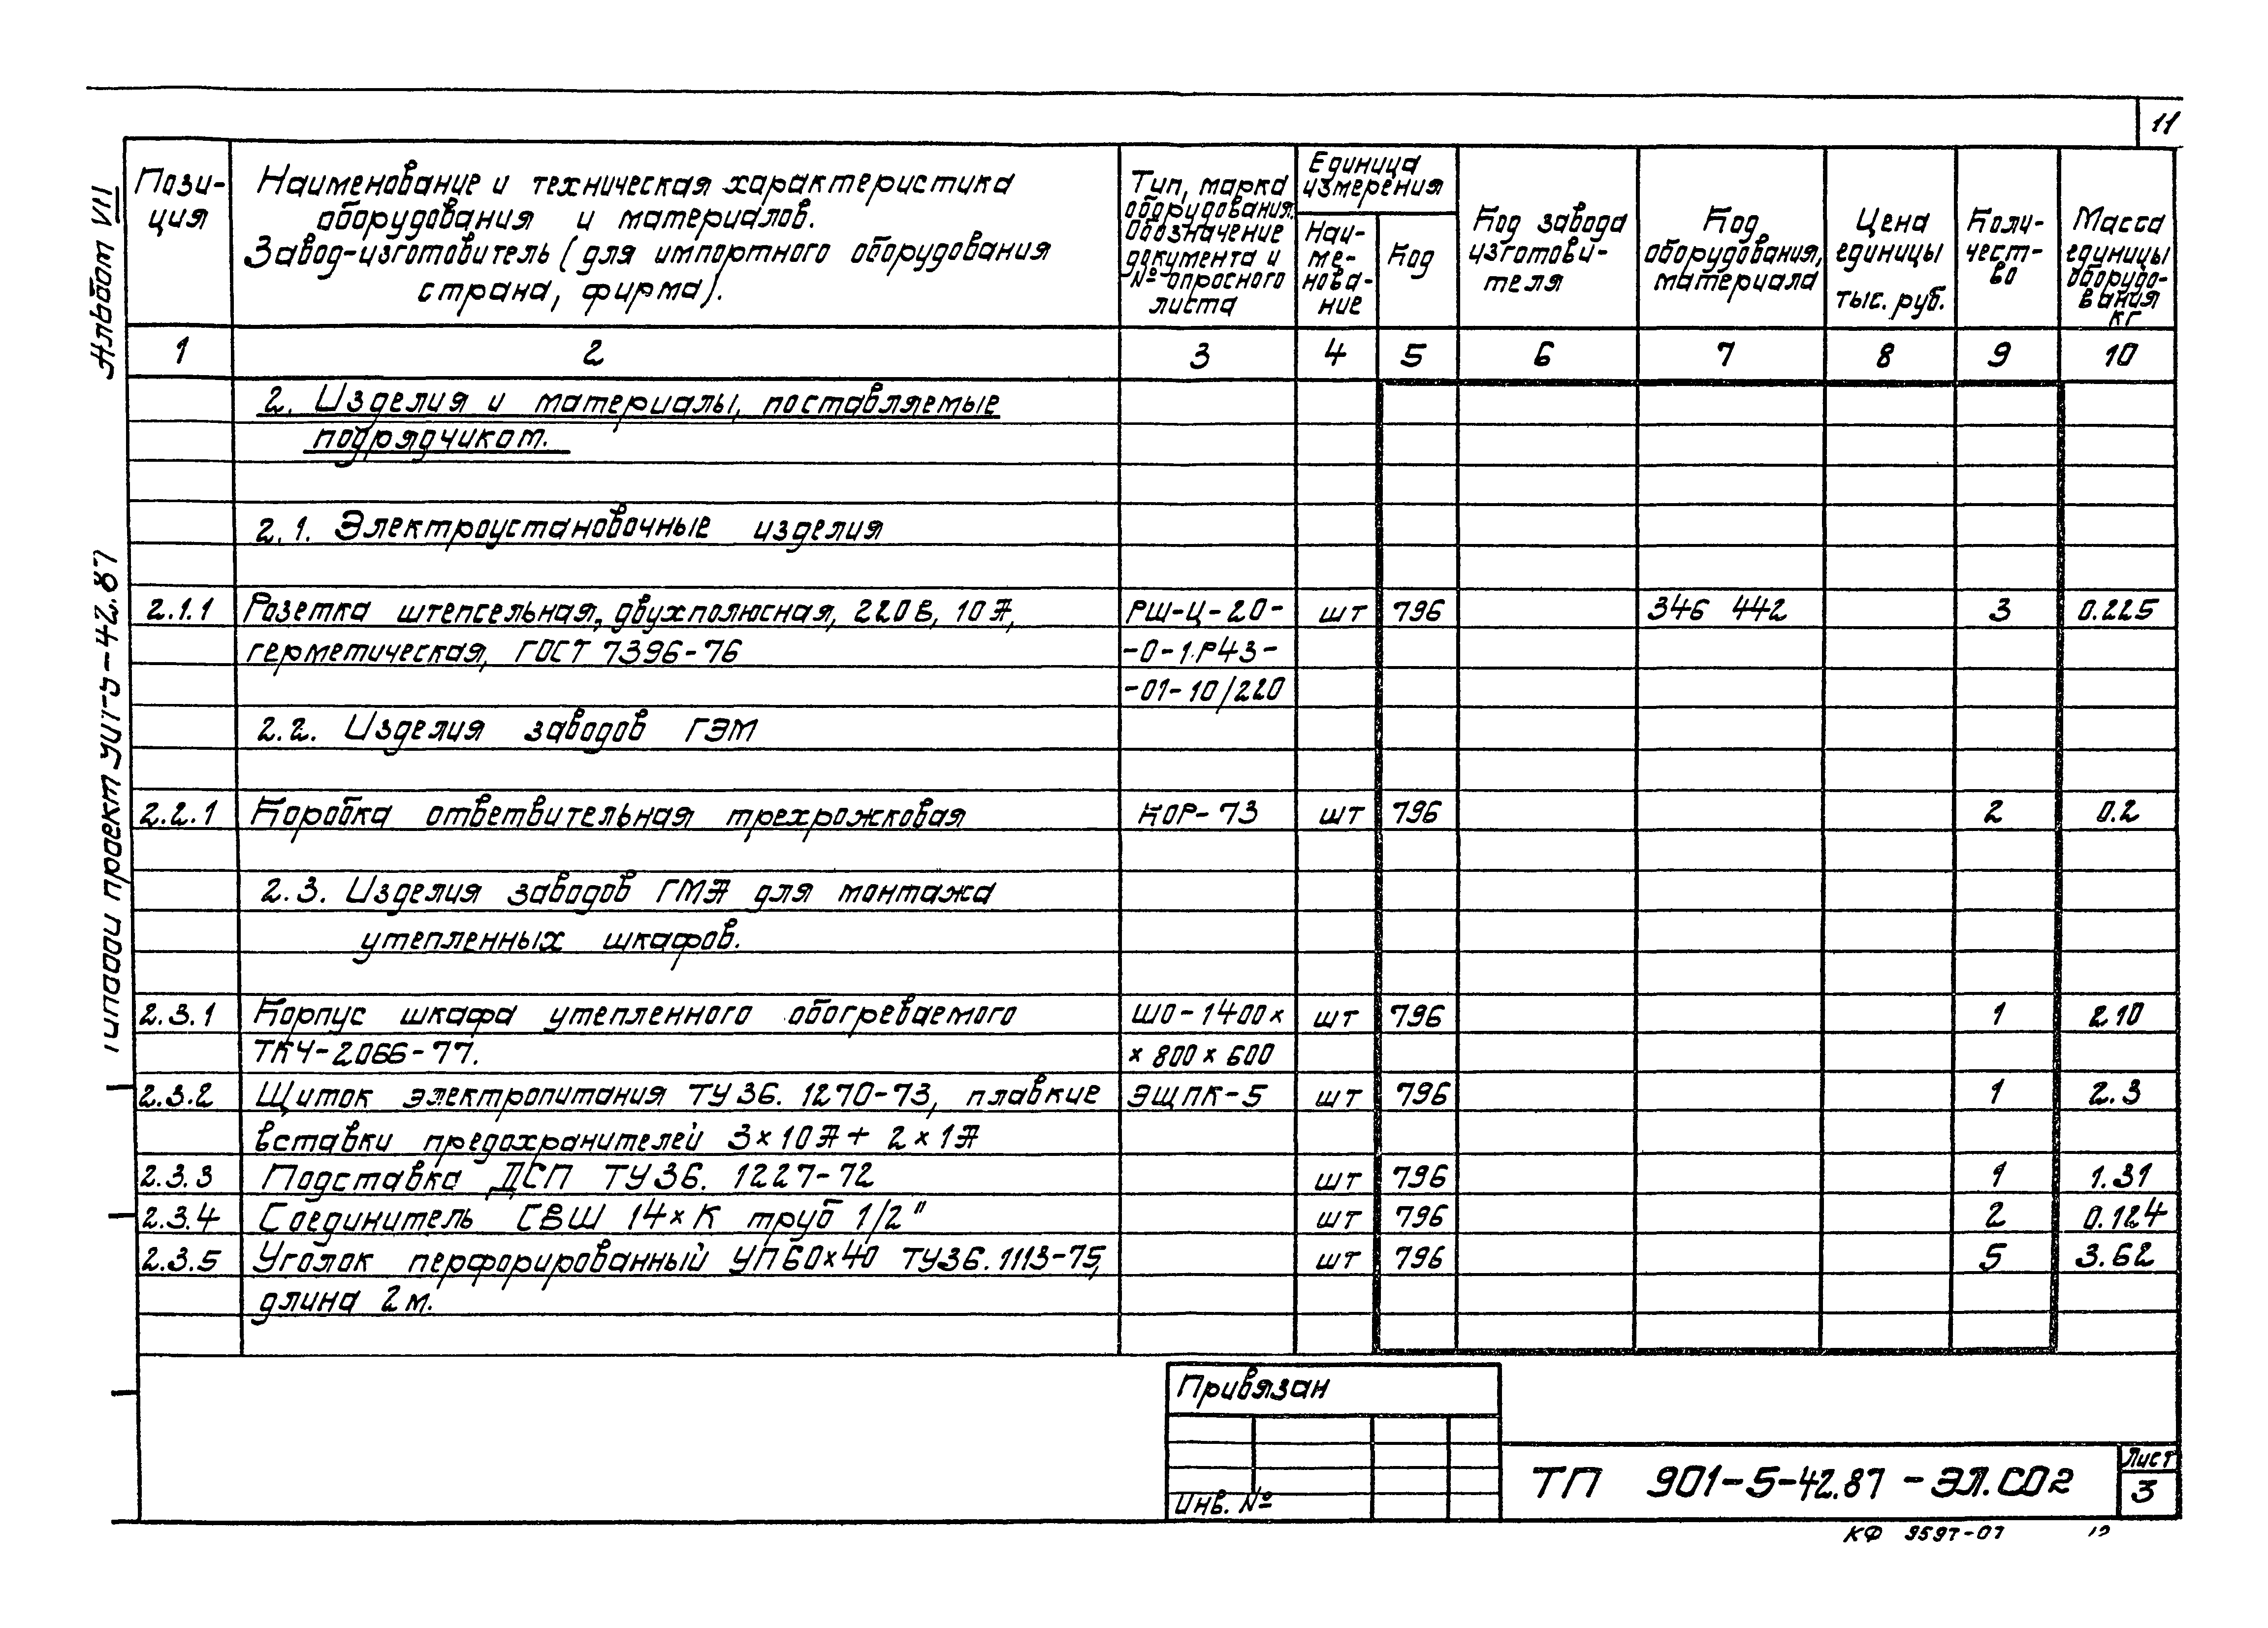 11
Альбом VII
Типовой проект 901-5-42.87
Пози-
ция
Наименование и техническая характеристика
оборудования и материалов.
Завод-изготовитель (для импортного оборудования
страна, фирма).
Тип, марка
оборудования.
Обозначение
документа и
№ опросного
листа
Единица
измерения
Наи-
ме-
нова-
ние
Код
Код завода
изготови-
теля
Код
оборудования,
материала
Цена
единицы
тыс. руб.
Коли-
чест-
во
Масса
единицы
оборудо-
вания
кг
1 2 3 4 5 6 7 8 9 10
2. Изделия и материалы, поставляемые
подрядчиком.
2.1. Электроустановочные изделия
2.1.1 Розетка штепсельная, двухполюсная, 220В, 10А, РШ-Ц-20- шт 796 346 442 3 0.225
герметическая, ГОСТ 7396-76 -0-1.Р43-
-01-10/220
2.2. Изделия заводов ГЭМ
2.2.1 Коробка ответвительная трехрожковая КОР-73 шт 796 2 0.2
2.3. Изделия заводов ГМА для монтажа
утепленных шкафов.
2.3.1 Корпус шкафа утепленного обогреваемого ШО-1400х шт 796 1 210
ТКЧ-2066-77. х 800 х 600
2.3.2 Щиток электропитания ТУ36. 1270-73, плавкие ЭЩПК-5 шт 796 1 2.3
вставки предохранителей 3х10А + 2х1А
2.3.3 Подставка ДСП ТУ36. 1227-72 шт 796 1 1.31
2.3.4 Соединитель СВШ 14хК труб 1/2" шт 796 2 0.124
2.3.5 Уголок перфорированный УП60х40 ТУ36.1113-75, шт 796 5 3.62
длина 2м.
Привязан
Инв. №
ТП 901-5-42.87 - ЭЛ.СО2
Лист
3
КФ 9597-07